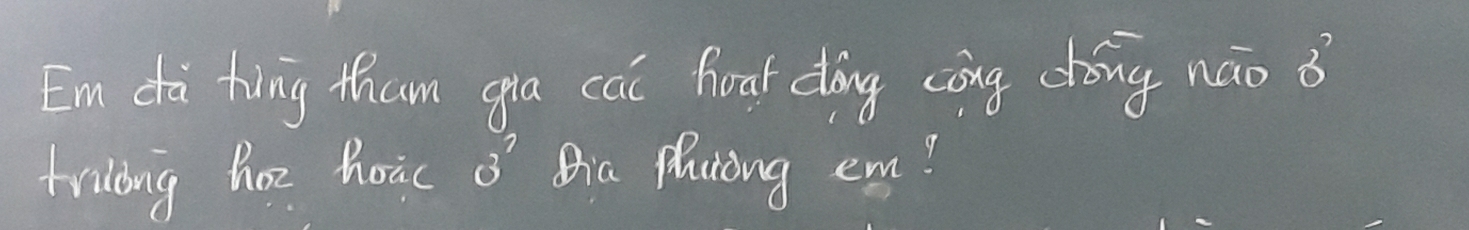 Em đã từng tham gia các hoạt động cộng đồng nào ở
trường học hoặc ở Địa phương em?